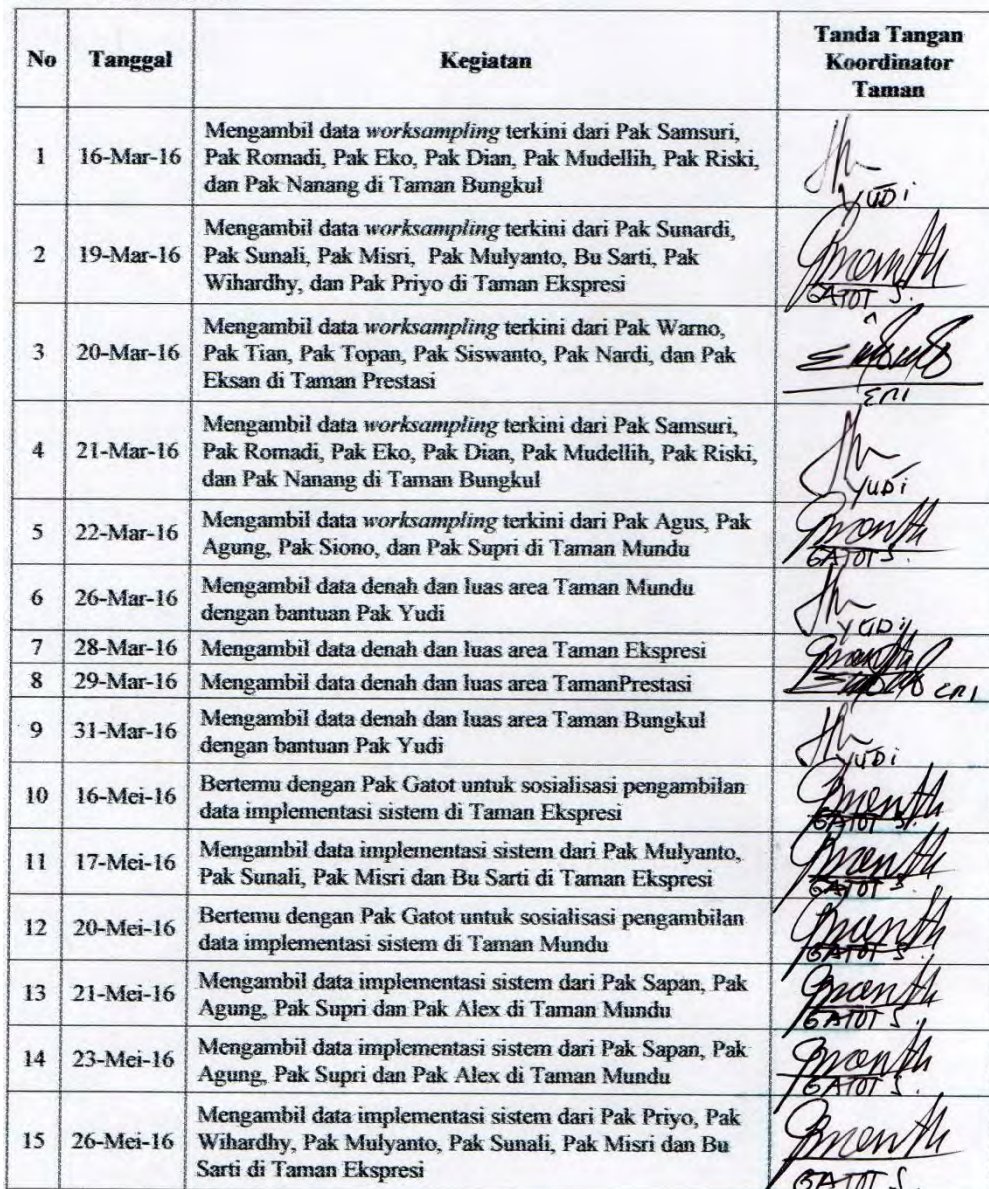 No Tanggal Kegiatan Tanda Tangan
Koordinator
Taman
1 16-Mar-16 Mengambil data worksampling terkini dari Pak Samsuri,
Pak Romadi, Pak Eko, Pak Dian, Pak Mudellih, Pak Riski,
dan Pak Nanang di Taman Bungkul
YUDi
2 19-Mar-16 Mengambil data worksampling terkini dari Pak Sunardi,
Pak Sunali, Pak Misri, Pak Mulyanto, Bu Sarti, Pak
Wihardhy, dan Pak Priyo di Taman Ekspresi
GATOT S.
3 20-Mar-16 Mengambil data worksampling terkini dari Pak Warno,
Pak Tian, Pak Topan, Pak Siswanto, Pak Nardi, dan Pak
Eksan di Taman Prestasi
ERI
4 21-Mar-16 Mengambil data worksampling terkini dari Pak Samsuri,
Pak Romadi, Pak Eko, Pak Dian, Pak Mudellih, Pak Riski,
dan Pak Nanang di Taman Bungkul
YUDi
5 22-Mar-16 Mengambil data worksampling terkini dari Pak Agus, Pak
Agung, Pak Siono, dan Pak Supri di Taman Mundu
GATOT S.
6 26-Mar-16 Mengambil data denah dan luas area Taman Mundu
dengan bantuan Pak Yudi
YUDi
7 28-Mar-16 Mengambil data denah dan luas area Taman Ekspresi
8 29-Mar-16 Mengambil data denah dan luas area TamanPrestasi
ERI
9 31-Mar-16 Mengambil data denah dan luas area Taman Bungkul
dengan bantuan Pak Yudi
YUDi
10 16-Mei-16 Bertemu dengan Pak Gatot untuk sosialisasi pengambilan
data implementasi sistem di Taman Ekspresi
GATOT S.
11 17-Mei-16 Mengambil data implementasi sistem dari Pak Mulyanto,
Pak Sunali, Pak Misri dan Bu Sarti di Taman Ekspresi
GATOT S.
12 20-Mei-16 Bertemu dengan Pak Gatot untuk sosialisasi pengambilan
data implementasi sistem di Taman Mundu
GATOT S.
13 21-Mei-16 Mengambil data implementasi sistem dari Pak Sapan, Pak
Agung, Pak Supri dan Pak Alex di Taman Mundu
GATOT S.
14 23-Mei-16 Mengambil data implementasi sistem dari Pak Sapan, Pak
Agung, Pak Supri dan Pak Alex di Taman Mundu
GATOT S.
15 26-Mei-16 Mengambil data implementasi sistem dari Pak Priyo, Pak
Wihardhy, Pak Mulyanto, Pak Sunali, Pak Misri dan Bu
Sarti di Taman Ekspresi
GATOT S.